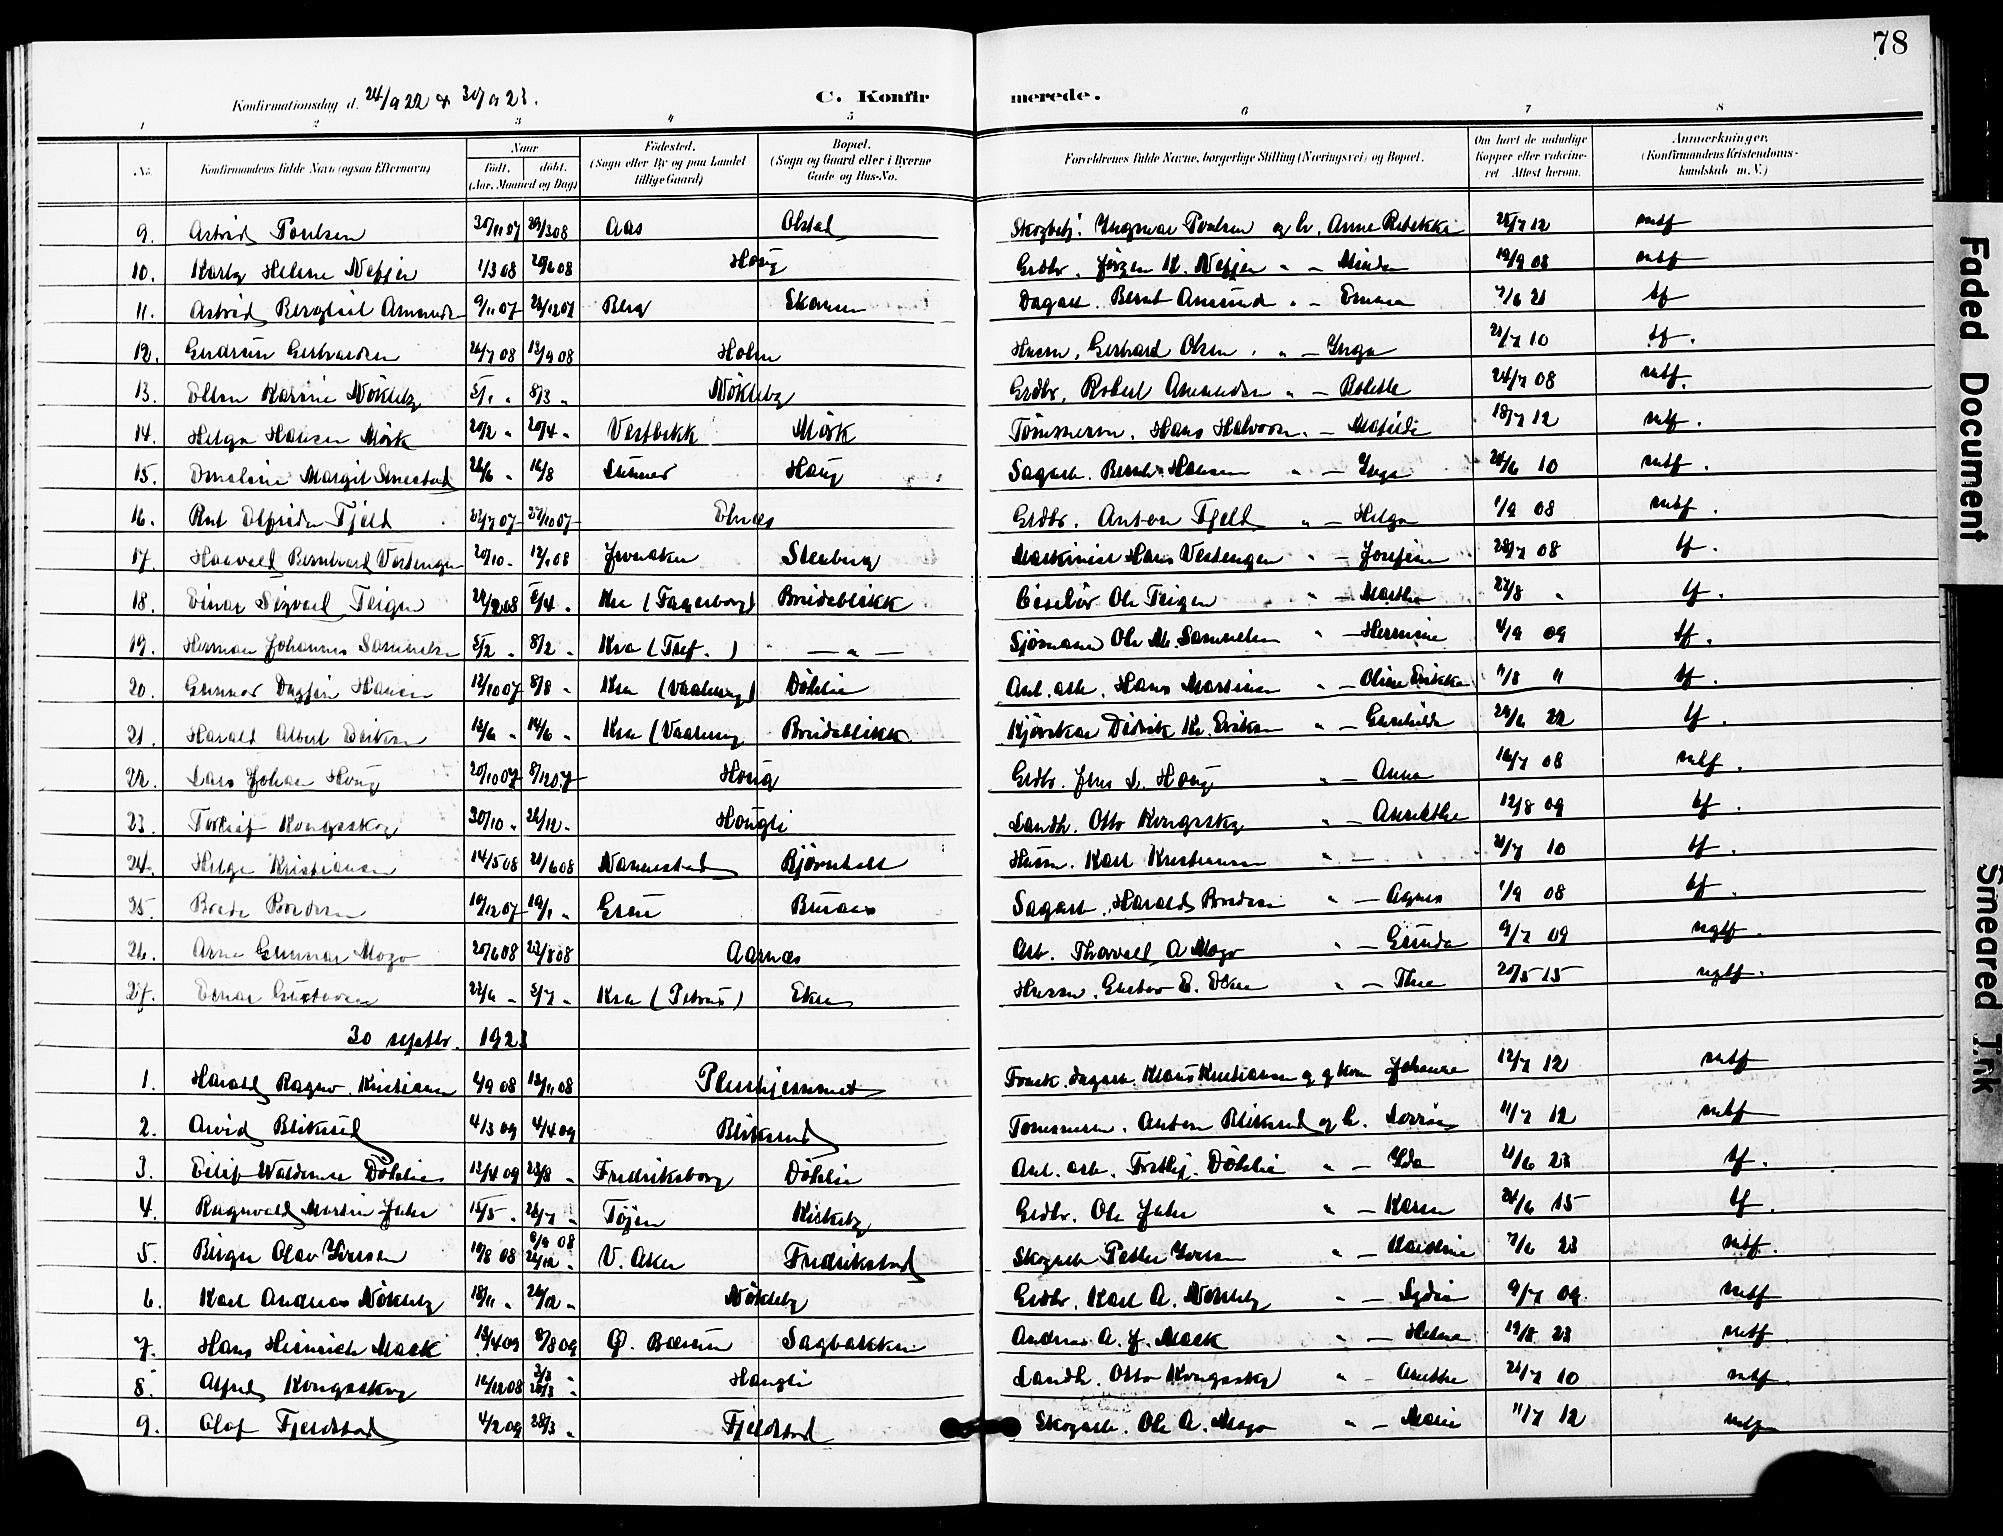 78
Konfirmationsdag d. 24/9 22 & 30/9 23.
C. Konfirmerede.
1 2 3 4 5 6 7 8
No. Konfirmandens fulde Navn (ogsaa Efternavn) Naar født. døbt. (Aar, Maaned og Dag) Fødested. (Sogn eller By og paa Landet tillige Gaard) Bopæl. (Sogn og Gaard eller i Byerne Gade og Hus-No. Forældrenes fulde Navne, borgerlige Stilling (Næringsvei) og Bopæl. Om havt de naturlige Kopper eller vaccineret Attest herom. Anmerkninger. (Konfirmandens Kristendomskundskab m. V.)
9. Astrid Poulsen 30/11 07 29/3 08 Aas Olstad Skogbetj. Yngvar Poulsen og h. Anne Rebekka 25/7 12 mtf
10. Karly Helene Nesjer 1/3 08 20/6 08 Haug Grdbr. Jørgen K. Nesjer " – Minda 19/9 08 mtf
11. Astrid Bergliot Amunds 9/11 07 26/12 07 Berg Skomen Dagarb. Bernt Amund " – Emma 7/6 21 tf
12. Gudrun Gerhardsen 26/7 08 13/9 08 Holm Husm. Gerhard Olsen " – Inga 21/7 10 tf.
13. Ellen Karine Nökleby 5/1 " 8/3 " Nökleby Grdbr. Robert Amundsen " – Bolette 24/7 08 mtf.
14. Helga Hansen Mörk 20/2 " 20/4 " Vestbekk Mörk Tömmerm. Hans Halvors. – Matilde 18/7 12 mtf.
15. Margit Smestad 26/6 " 16/8 Lunner Haug Sagarb. Bernh. Hansen " – Inga 21/6 10 mtf.
16. Rut Elfrida Fjeld 22/7 07 27/10 07 Elnæs Grdbr. Anton Fjeld " – Helga 1/9 08 mtf.
17. Haavald Bernhard Vestengen 20/10 " 12/1 08 Jevnaker Stenberg Maskinist Hans Vestengen " – Josefine 28/7 08 tf.
18. Einar Sigvard Teigen 24/2 08 5/4 " Kra (Fagerborg) Breidablikk Ciselör Ole Teigen " – Marthe 27/8 " tf.
19. Herman Johannes Samuelsen 5/2 " 8/2 " Kra (Tref.) – " – Sjömann Ole M. Samuelsen " – Hermine 4/9 09 tf.
20. Gunnar Dagfin Hansen 12/10 07 8/8 " Kra (Vaalereng) Döhlie Anl. arb. Hans Martinsen " – Oline Erikka 7/8 " tf.
21. Harald Albert Eriksen 13/6 " 14/6 " Kra (Vaalereng Breidablikk Kjörekar Didrik Kr. Eriksen " – Gunhilda 24/6 22 tf.
22. Lars Johan Houg 20/10 07 8/12 07 Houg Grdbr. Jens L. Houg " – Anna 16/7 08 mtf.
23. Torleif Kongsskog 30/10 " 26/12 " Hougli Landh. Otto Kongsskog " – Anrethe 12/8 09 tf.
24. Helge Kristiansen 14/5 08 21/6 08 Nannestad Bjørnholt Husm. Karl Kristiansen " – 21/7 10 tf.
25. Brede Bredesen 10/12 07 19/1 " Grue Buraas Sagarb. Harald Bredesen " – Agnes 1/9 08 tf.
26. Arne Gunnar Mogo 20/6 08 23/8 08 Aarnæs Arb. Thorvald A Mogo " – Gunda 9/7 09 mgtf.
27. Einar Gustavsen 22/6 " 5/7 " Kra (Petrus) Eken Husm. Gustav E. Eken " – Thea 20/5 15 mgtf.
30 septbr. 1923
1. Harald Ragnv. Kristiansen 4/9 08 15/11 08 Pleiehjemmet Forsk. dagarb. Klaus Kristiansen og g. kone Johanne 12/7 12 mtf
2. Arvid Bliksrud 4/3 09 4/4 09 Bliksrud Tömmerm. Anton Bliksrud og h. Lovise 11/7 12 mtf
3. Eilif Waldemar Döhlie 13/4 09 23/8 " Fredriksborg Döhlie Anl. arb. Fritlj. Döhlie " – Ida 21/6 23 tf.
4. Ragnvald Martin Jahr 15/5 " 26/7 " Töjen Kirkeby Grdbr. Ole Jahr " – Karen 24/6 15 tf.
5. Birger Olav Iversen 10/8 08 6/9 08 26/12 " V. Aker Fredrikstad Skogarb. Petter Iversen " – Karoline 7/6 23 mtf.
6. Karl Andreas Nökleby 18/11 " 26/12 " Nökleby Grdbr. Karl A. Nökleby " – Lydia 9/7 09 mtf
7. Hans Heinrich Mack 13/4 09 8/8 09 Ø. Bærum Sagbakken Andreas A. J. Mack " – Helene 19/8 23 mtf
8. Alfred Kongsskog 16/12 08 2/3 " 28/3 " Haugli Landh. Otto Kongsskog " – Anethe 21/7 10 mtf.
9. Olaf Fjeldstad 4/2 09 28/3 " Fjeldstad Skogarb. Ole A. Mogo " – Marie 11/7 12 mtf
Faded Document
Smeared Ink